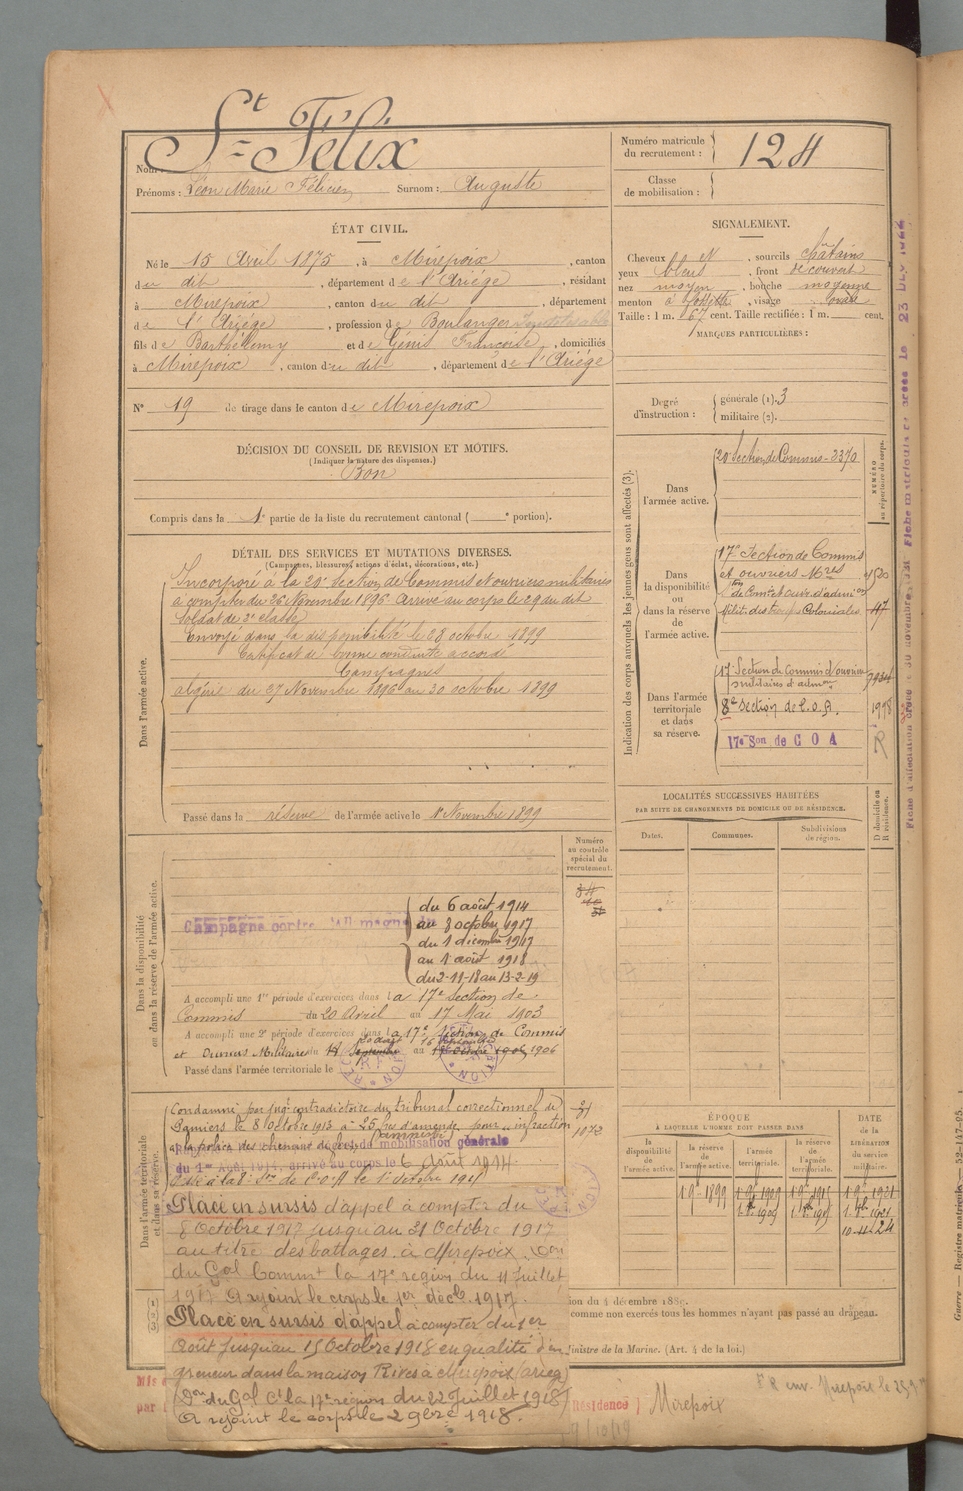 St Félix
Nom :
Prénoms : Léon Marie Félicien Surnom : Auguste
Numéro matricule du recrutement : 124
Classe de mobilisation :
ÉTAT CIVIL.
Né le 15 Avril 1875, à Mirepoix, canton
du dit, département de l'Ariége, résidant
à Mirepoix, canton du dit, département
de l'Ariége, profession de Boulanger
fils de Barthélemy et de Génis Françoise, domiciliés
à Mirepoix, canton du dit, département de l'Ariége
N° 19 de tirage dans le canton de Mirepoix
DÉCISION DU CONSEIL DE REVISION ET MOTIFS.
(Indiquer la nature des dispenses.)
Bon
Compris dans la 1e partie de la liste du recrutement cantonal ( e portion).
SIGNALEMENT.
Cheveux N, sourcils châtains
yeux bleus, front découvert
nez moyen, bouche moyenne
menton à fossette, visage ovale
Taille : 1 m. 67 cent. Taille rectifiée : 1 m. cent.
MARQUES PARTICULIÈRES :
Degré d'instruction : générale (1). 3
militaire (2).
DÉTAIL DES SERVICES ET MUTATIONS DIVERSES.
(Campagnes, blessures, actions d'éclat, décorations, etc.)
Dans l'armée active.
Incorporé à la 20e Section de Commis et ouvriers militaires
à compter du 26 Novembre 1896. Arrivé au corps le 29 au dit
Soldat de 2e classe
Envoyé dans la disponibilité le 28 octobre 1899
Certificat de bonne conduite accordé
Campagnes
Algérie du 27 Novembre 1896 au 30 octobre 1899
Passé dans la réserve de l'armée active le 1er Novembre 1899
Indication des corps auxquels les jeunes gens sont affectés (3).
NUMÉRO au répertoire du corps.
Dans l'armée active.
20e Section de Commis - 2370
Dans la disponibilité ou dans la réserve de l'armée active.
17e Section de Commis
et ouvriers Mres
Milit. des troupes Coloniales 117
Dans l'armée territoriale et dans sa réserve.
17e Section de Commis d'Ouvriers
militaires d'admon
8e Section de C.O.A. 1998
17e Son de C O A
R
LOCALITÉS SUCCESSIVES HABITÉES
PAR SUITE DE CHANGEMENTS DE DOMICILE OU DE RÉSIDENCE.
D domicile ou R résidence.
Dates. Communes. Subdivisions de région.
Numéro au contrôle spécial du recrutement.
Dans la disponibilité ou dans la réserve de l'armée active.
Campagne contre l'Allemagne du
du 6 août 1914
au 8 octobre 1917
du 1 décembre 1917
au 1 août 1918
du 2-11-18 au 13-2-19
A accompli une 1re période d'exercices dans la 17e section de
Commis du 20 Avril au 17 Mai 1903
A accompli une 2e période d'exercices dans la 17e Section de Commis
et Ouvriers Militaires du 20 août au 16 Septembre 1906
Passé dans l'armée territoriale le
Dans l'armée territoriale et dans sa réserve.
Condamné par jugt contradictoire du tribunal correctionnel de
Pamiers le 8 Octobre 1913 à 25 frs d'amende pour infraction
à la police des chemins de fer (amnistié)
de mobilisation générale
du 1er Août 1914, arrivé au corps le 6 Août 1914.
Passé à la 8e Son de C.O.A le 1er Octobre 1915
Placé en sursis d'appel à compter du
8 Octobre 1917 jusqu'au 31 Octobre 1917
au titre des battages à Mirepoix. Don
du Gal Commt la 17e région du 11 Juillet
1917 A rejoint le corps le 1er décb. 1917.
Placé en sursis d'appel à compter du 1er
Août jusqu'au 15 Octobre 1918 en qualité d'en
greneur dans la maison Rives à Mirepoix (Ariège)
Don du Gal Ct la 17e région du 22 Juillet 1918
A rejoint le corps le 2 9bre 1918.
ÉPOQUE
À LAQUELLE L'HOMME DOIT PASSER DANS
la disponibilité de l'armée active. la réserve de l'armée active. l'armée territoriale. la réserve de l'armée territoriale.
DATE de la LIBÉRATION du service militaire.
10-11-24
ion du 4 décembre 1889.
comme non exercés tous les hommes n'ayant pas passé au drapeau.
Ministre de la Marine. (Art. 4 de la loi.)
Mis e
par
Résidence } Mirepoix
9/10/19
Guerre — Registre matricule — 52-147-95.